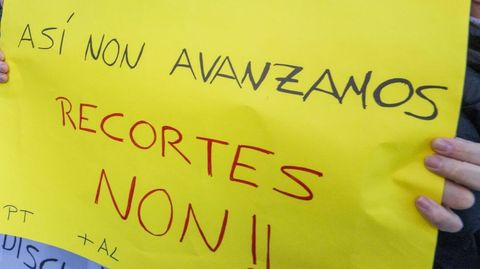 ASÍ NON AVANZAMOS
RECORTES
NON!!
PT
+ AL
DISC